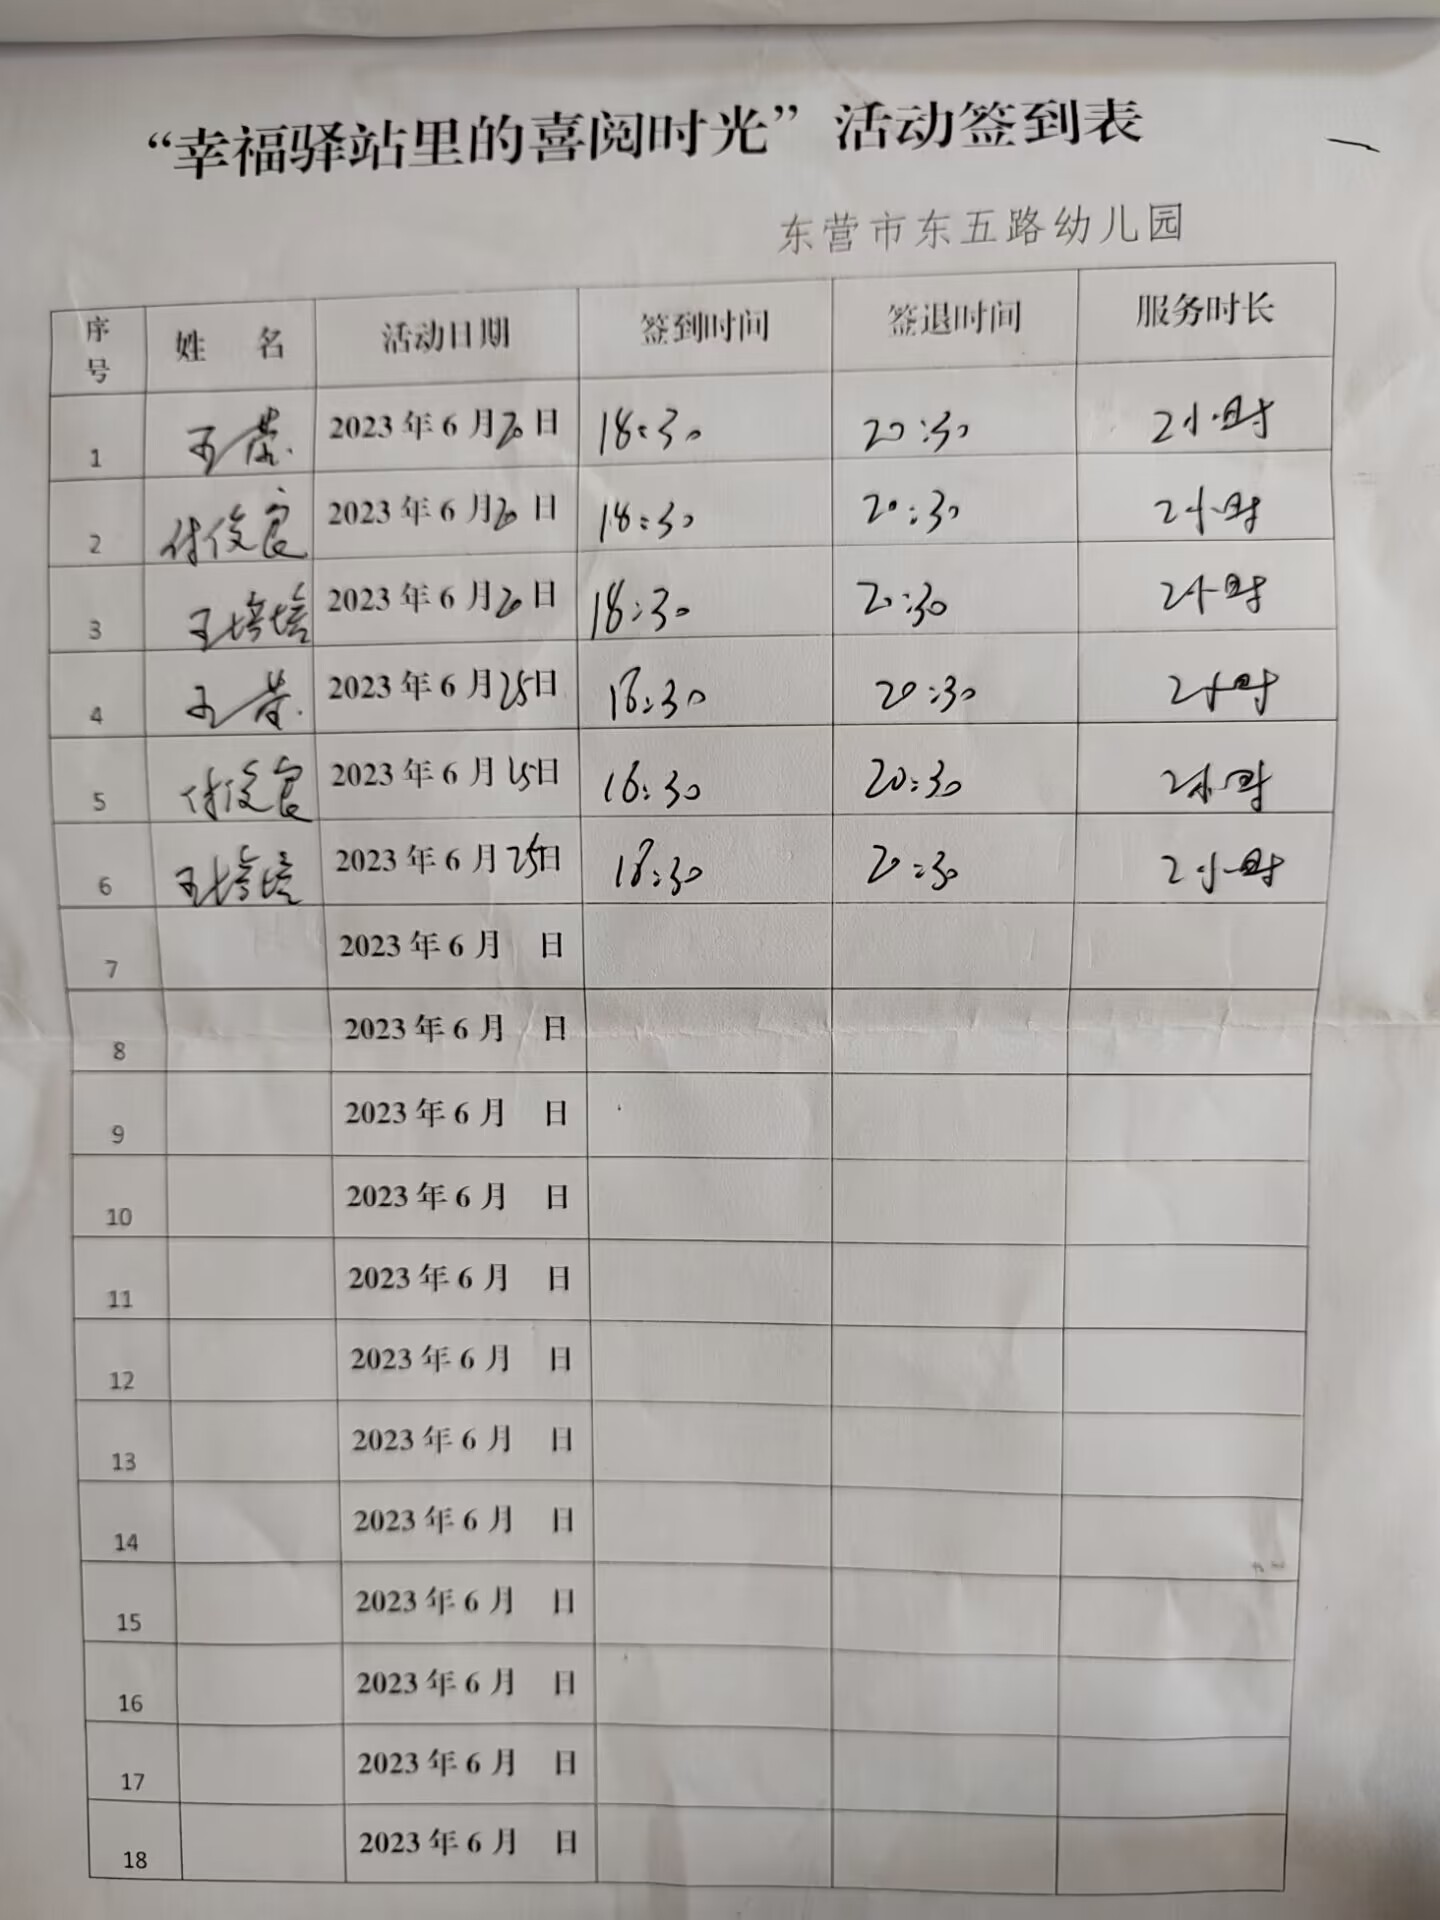 “幸福驿站里的喜阅时光”活动签到表
东营市东五路幼儿园
序号 姓 名 活动日期 签到时间 签退时间 服务时长
1 王荣 2023年6月20日 18:30 20:30 2小时
2 付俊良 2023年6月20日 18:30 20:30 2小时
3 王培培 2023年6月20日 18:30 20:30 2小时
4 王荣 2023年6月25日 18:30 20:30 2小时
5 付俊良 2023年6月25日 18:30 20:30 2小时
6 王培培 2023年6月25日 18:30 20:30 2小时
7 2023年6月 日
8 2023年6月 日
9 2023年6月 日
10 2023年6月 日
11 2023年6月 日
12 2023年6月 日
13 2023年6月 日
14 2023年6月 日
15 2023年6月 日
16 2023年6月 日
17 2023年6月 日
18 2023年6月 日